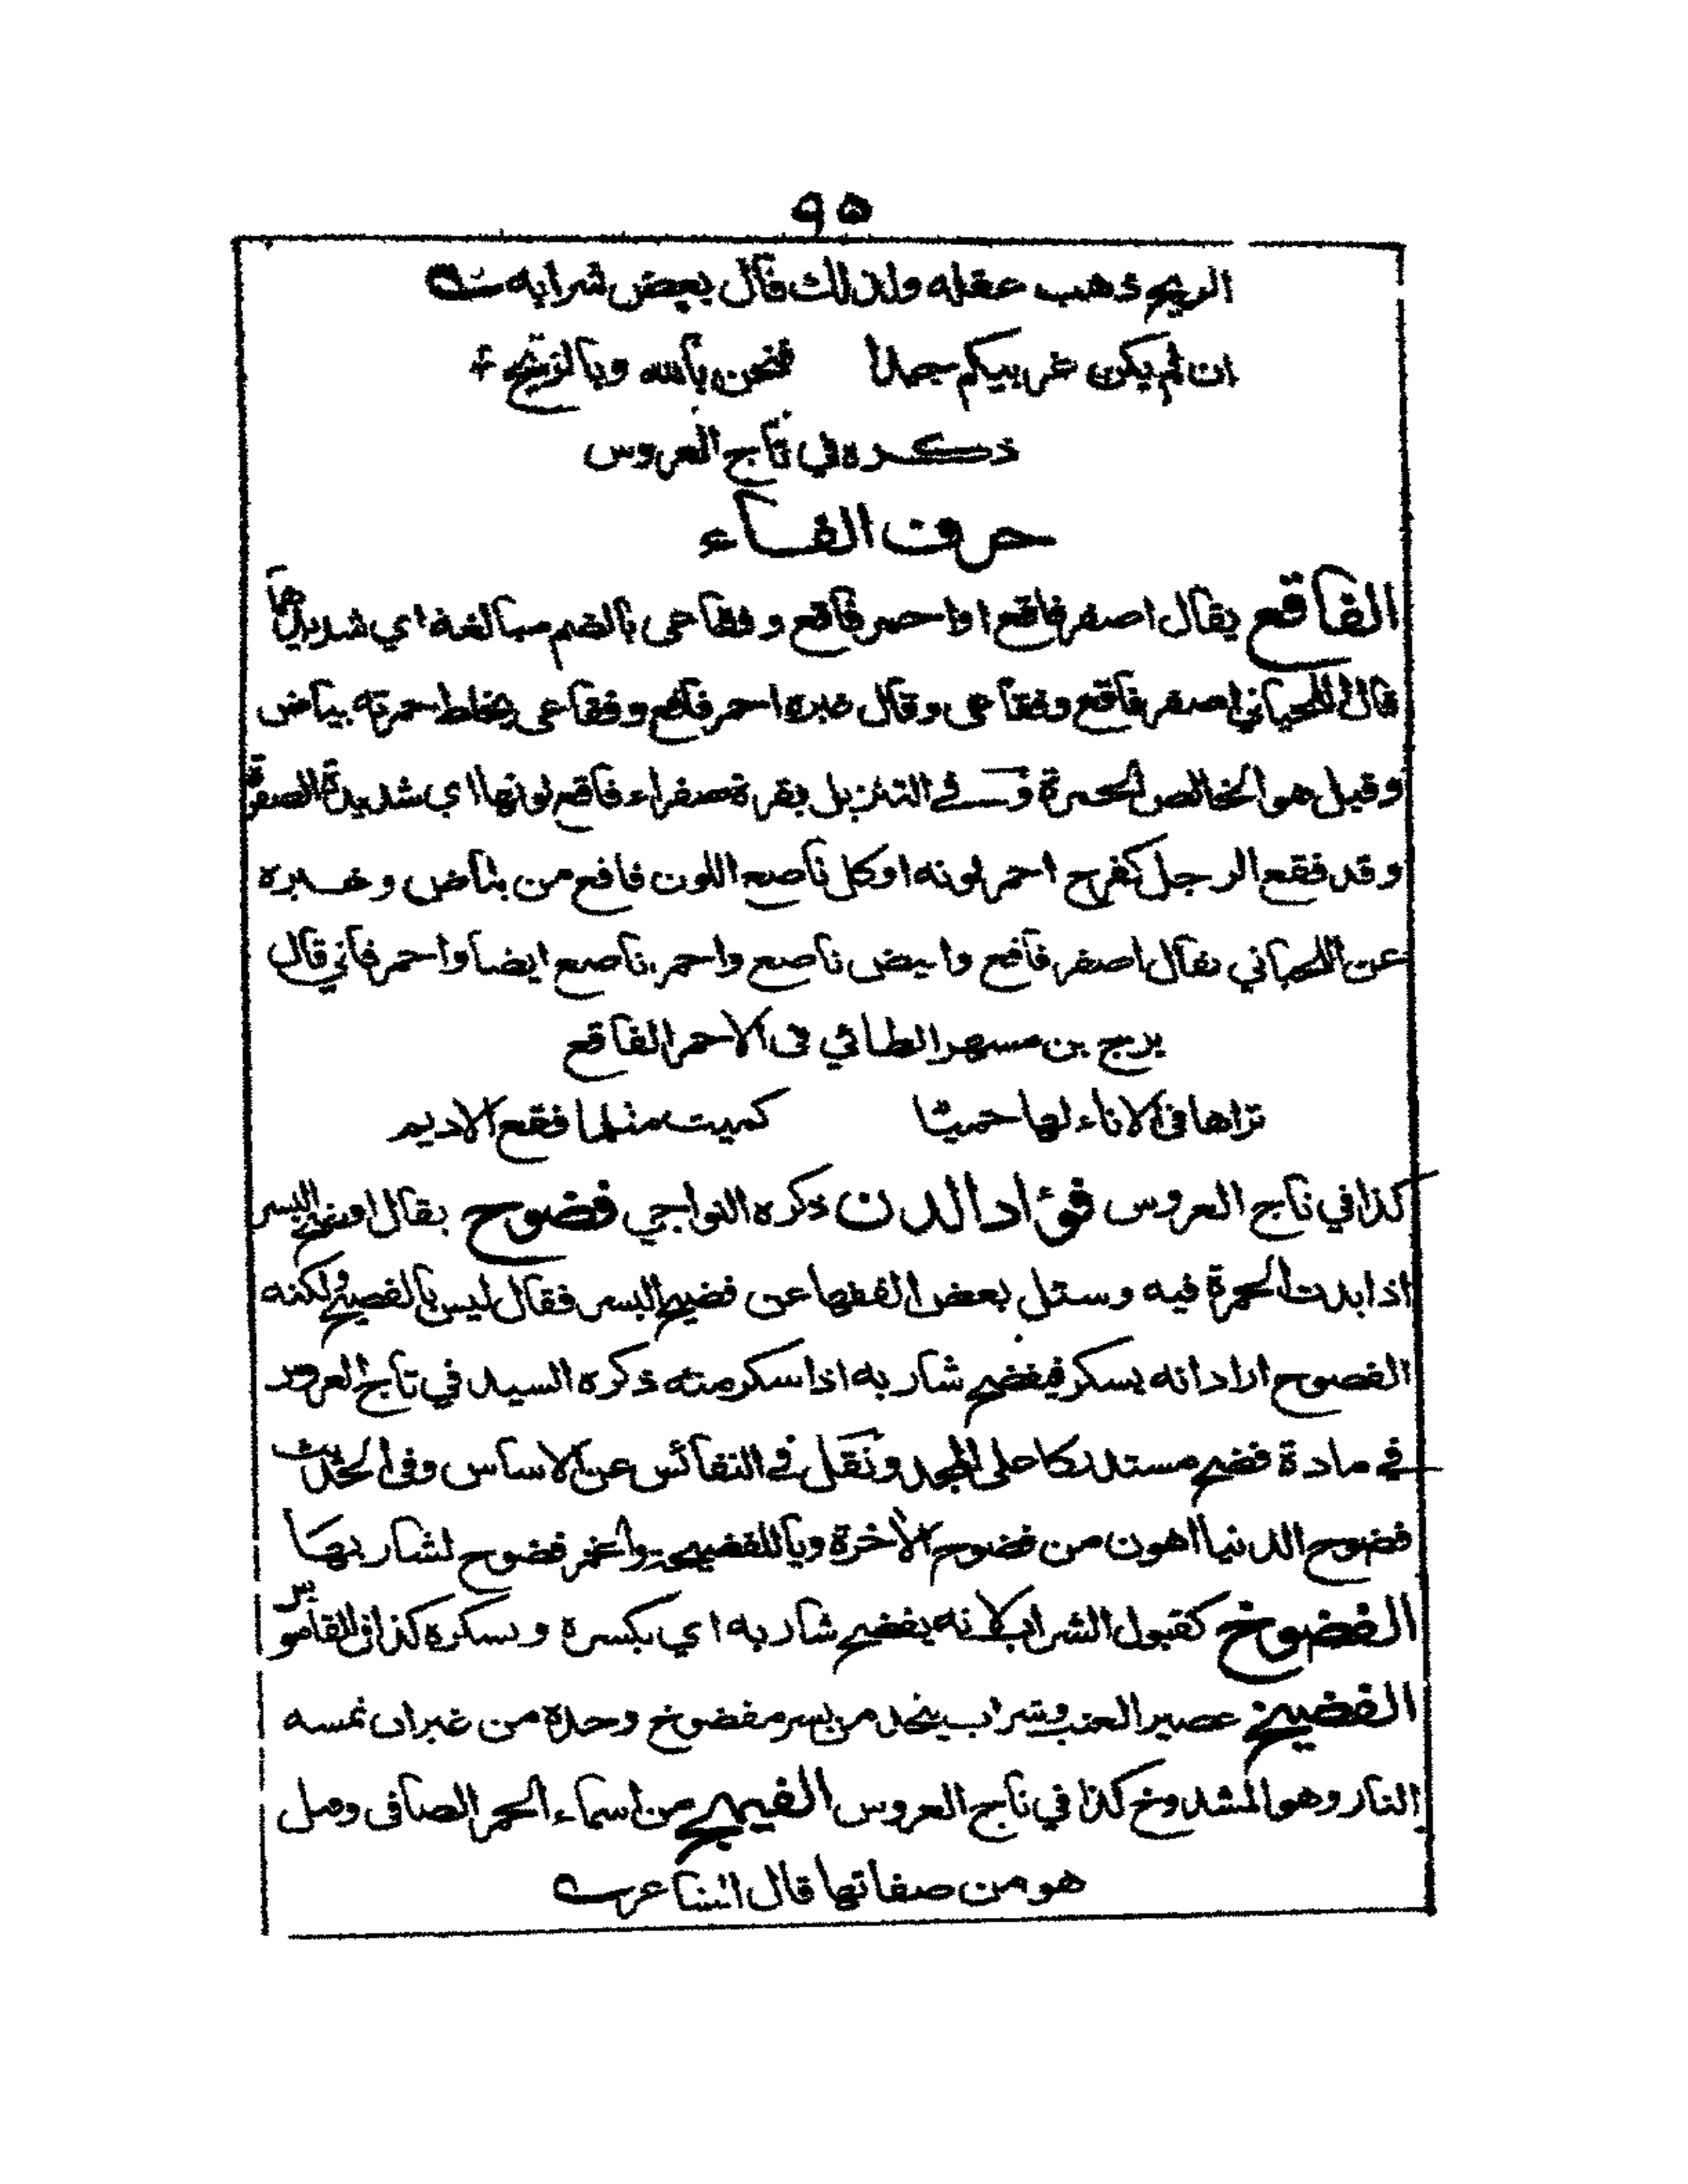 ٩٥
الريح ذهب عقله ولذلك قال بعض شرابه
ان لم يكن غربيكم جملا فنحن بالله وبالريح
ذكره في تاج العروس
حرف الفاء
الفاقع يقال اصفر فاقع او احمر فاقع وفقاعى بالضم مبالغة اي شديدهما
قال اللحياني اصفر فاقع وفقاعى وقال غيره احمر فاقع وفقاعى يخلط حمرته بياض
وقيل هو الخالص الحمرة وفي التنزيل بقرة صفراء فاقع لونها اي شديدة الصفرة
وقد فقع الرجل كفرح احمر لونه او كل ناصع اللون فاقع من بياض وغيره
عن اللحياني يقال اصفر فاقع وابيض ناصع واحمر ناصع ايضا واحمر قاني قال
برج بن مسهر الطائي في الاحمر الفاقع
تراها في الاناء لها حميا كميت مثلما فقع الاديم
كذا في تاج العروس فؤاد الدن ذكره النواجي فضوح يقال افضح البسر
اذا بدت الحمرة فيه وسئل بعض الفقها عن فضيح البسر فقال ليس بالفضيح ولكنه
الفضوح اراد انه يسكر فيفضح شاربه اذا سكر منه ذكره السيد في تاج العروس
في مادة فضح مستدركا على المجد ونقل في النفائس عن الاساس وفي الحديث
فضوح الدنيا اهون من فضوح الاخرة ويا للفضيحة والخمر فضوح لشاربها
الفضوخ كقبول الشراب لانه يفضخ شاربه اي يكسره ويسكره كذا في القاموس
الفضيخ عصير العنب وشراب يتخذ من بسر مفضوخ وحده من غير ان تمسه
النار وهو المشدوخ كذا في تاج العروس الفيهج من اسماء الخمر الصافي وقيل
هو من صفاتها قال الشاعر